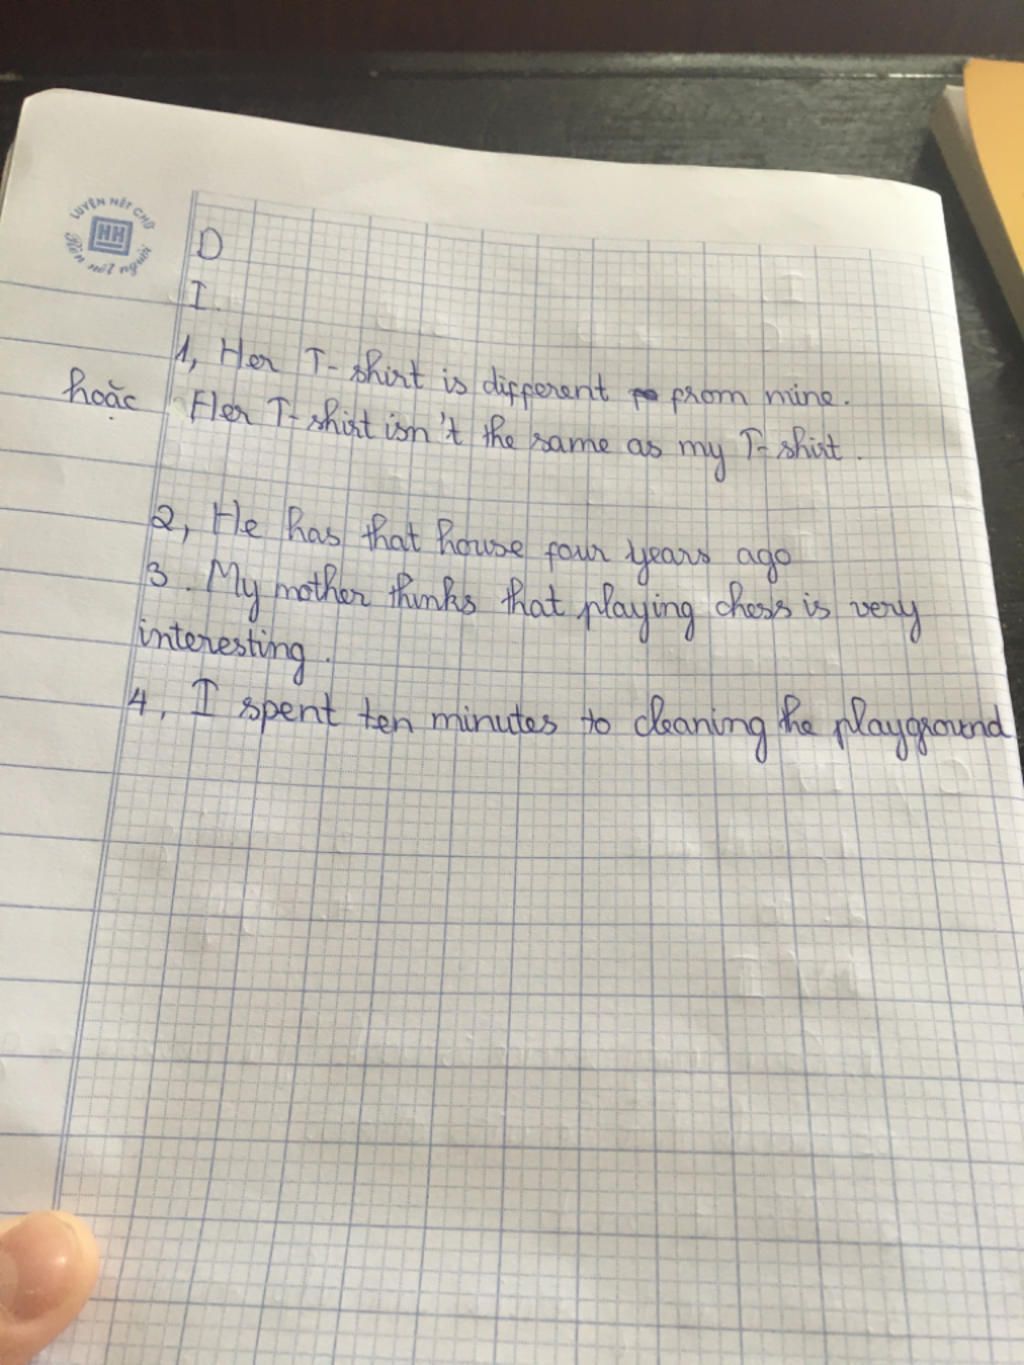 LUYỆN NÉT CHỮ
HH
Rèn nết người
D
I.
1, Her T-shirt is different from mine.
hoặc Her T-shirt isn't the same as my T-shirt.
2, He has that house four years ago
3. My mother thinks that playing chess is very
interesting.
4, I spent ten minutes to cleaning the playground